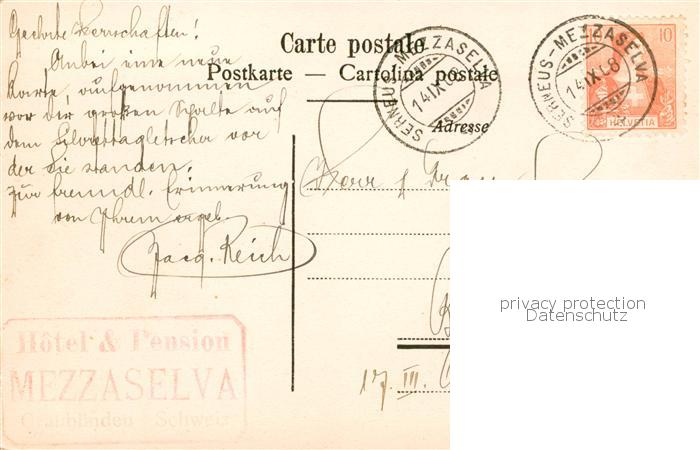 Geehrte Herrschaften!
Anbei eine neue
Karte, aufgenommen
vor der großen Spalte auf
dem Silvrettagletscher vor
der Sie standen.
Zur freundl. Erinnerung
von Ihrem ergeb.
Jacq. Reich
Hôtel & Pension
MEZZASELVA
Graubünden Schweiz
Carte postale
Postkarte — Cartolina postale
Adresse
SERNEUS-MEZZASELVA
14 IX 08
SERNEUS-MEZZASELVA
14 IX 08
10 10
HELVETIA
Herr
17. III.
privacy protection
Datenschutz